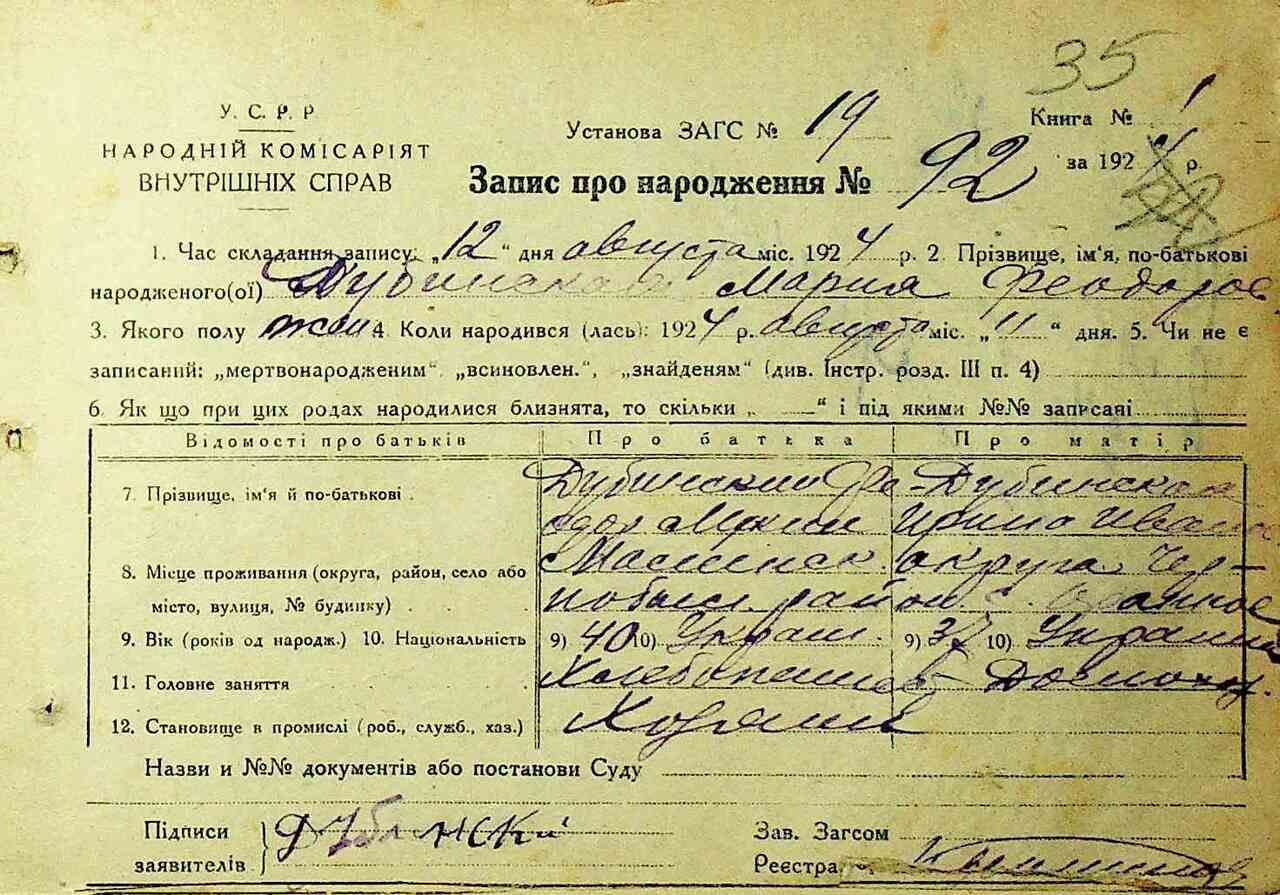 35
У. С. Р. Р
НАРОДНІЙ КОМІСАРІЯТ
ВНУТРІШНІХ СПРАВ
Установа ЗАГС № 19
Книга № 1
за 1924 р.
Запис про народження № 92
1. Час складання запису: „12“ дня августа міс. 1924 р. 2. Прізвище, ім'я, по-батькові
народженого(ої) Дубинская Мария Феодоров
3. Якого полу жен 4. Коли народився (лась): 1924 р. августа міс. „11“ дня. 5. Чи не є
записаний: „мертвонародженим“, „всиновлен.“, „знайденям“ (див. Інстр. розд. III п. 4)
6. Як що при цих родах народилися близнята, то скільки „ — “ і під якими №№ записані
Відомості про батьків Про батька Про матір
7. Прізвище, ім'я й по-батькові Дубинский Фе- Дубинская
одор Ирина Иван
8. Місце проживання (округа, район, село або округа Чер-
місто, вулиця, № будинку) район. с.
9. Вік (років од народж.) 10. Національність 9) 40 10) Украин. 9) 37 10) Украин
11. Головне заняття Хлебопашев Домохоз.
12. Становище в промислі (роб., служб., хаз.) Хозяин
Назви и №№ документів або постанови Суду
Підписи
заявителів Дубинский
Зав. Загсом
Реєстра